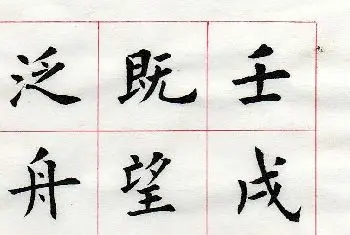 壬戌
既望
泛舟